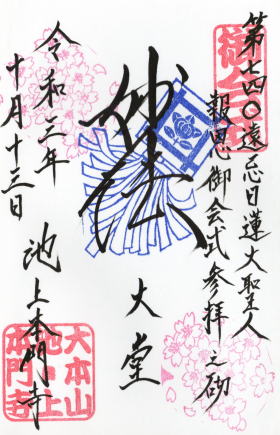 第七四〇遠忌日蓮大聖人
報恩御会式参拝之砌
妙法
大堂
令和三年
十月十三日
池上本門寺
大本山
池上
本門寺